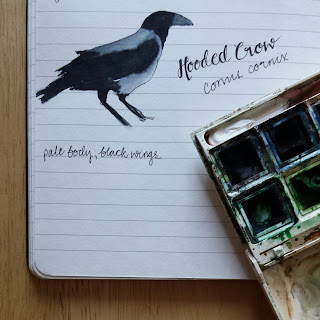 Hooded Crow
corvus cornix
pale body, black wings